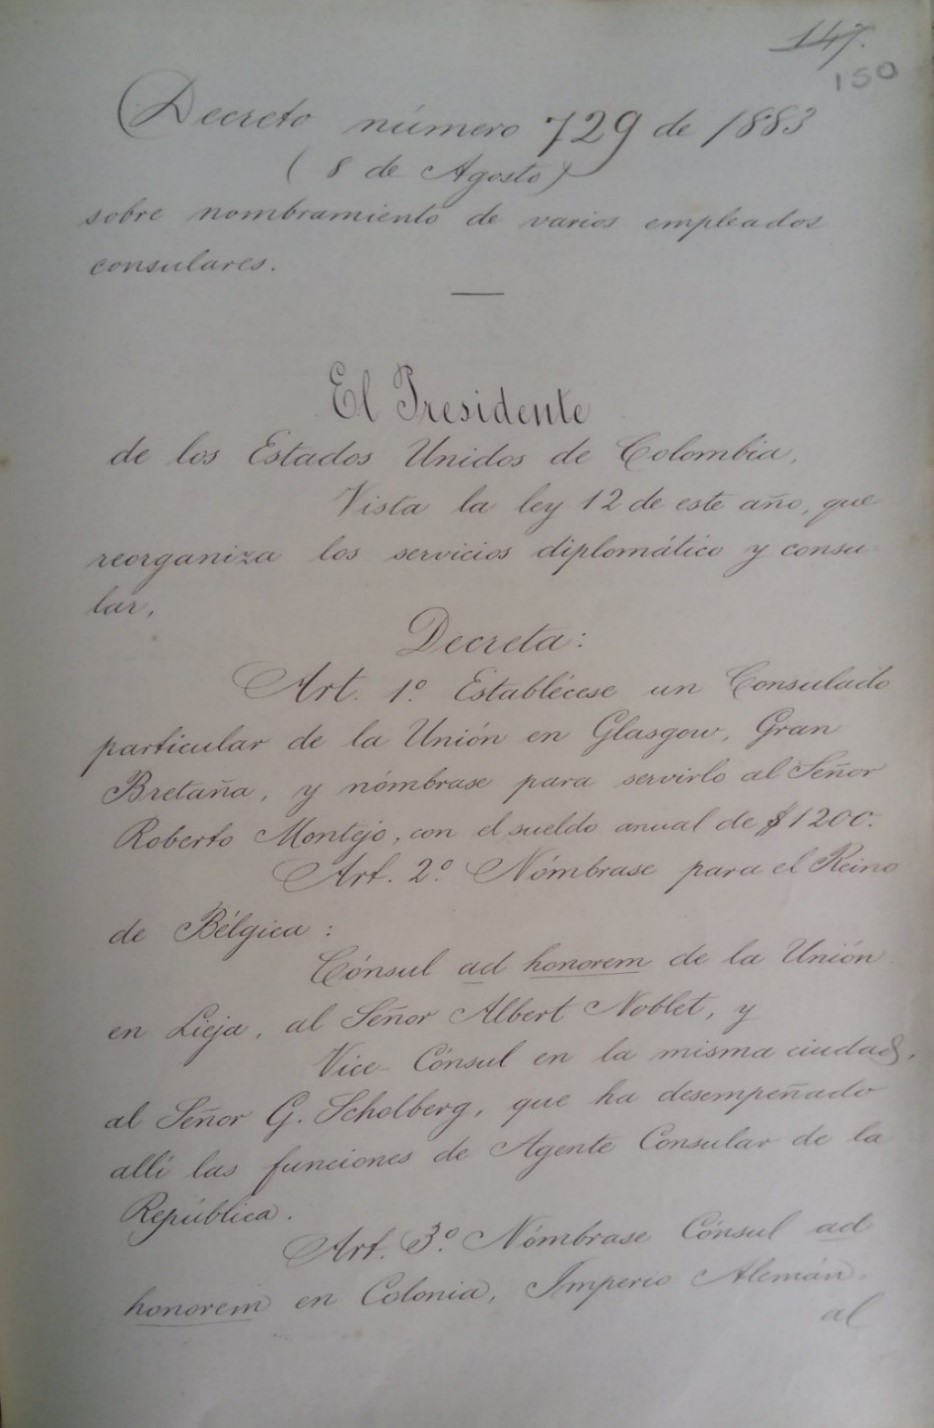 147.
150
Decreto número 729 de 1883
(8 de Agosto)
sobre nombramiento de varios empleados
consulares.
El Presidente
de los Estados Unidos de Colombia,
Vista la ley 12 de este año, que
reorganiza los servicios diplomático y consu-
lar,
Decreta:
Art. 1º Establécese un Consulado
particular de la Unión en Glasgow, Gran
Bretaña, y nómbrase para servirlo al Señor
Roberto Montejo, con el sueldo anual de $1200.
Art. 2º Nómbrase para el Reino
de Bélgica:
Cónsul ad honorem de la Unión
en Lieja, al Señor Albert Noblet, y
Vice-Cónsul en la misma ciudad,
al Señor G. Scholberg, que ha desempeñado
allí las funciones de Agente Consular de la
República.
Art. 3º Nómbrase Cónsul ad
honorem en Colonia, Imperio Alemán,
al